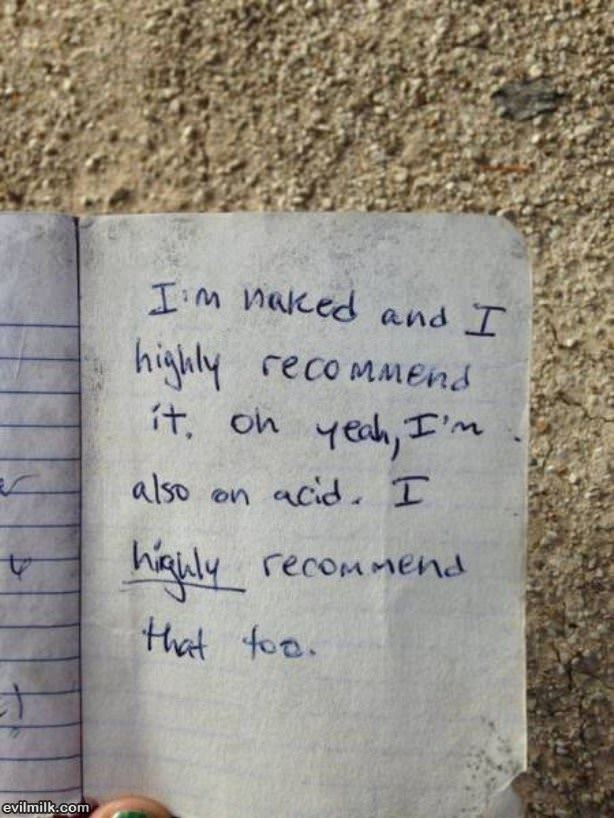 I'm naked and I
highly recommend
it. oh yeah, I'm
also on acid. I
highly recommend
that too.
evilmilk.com